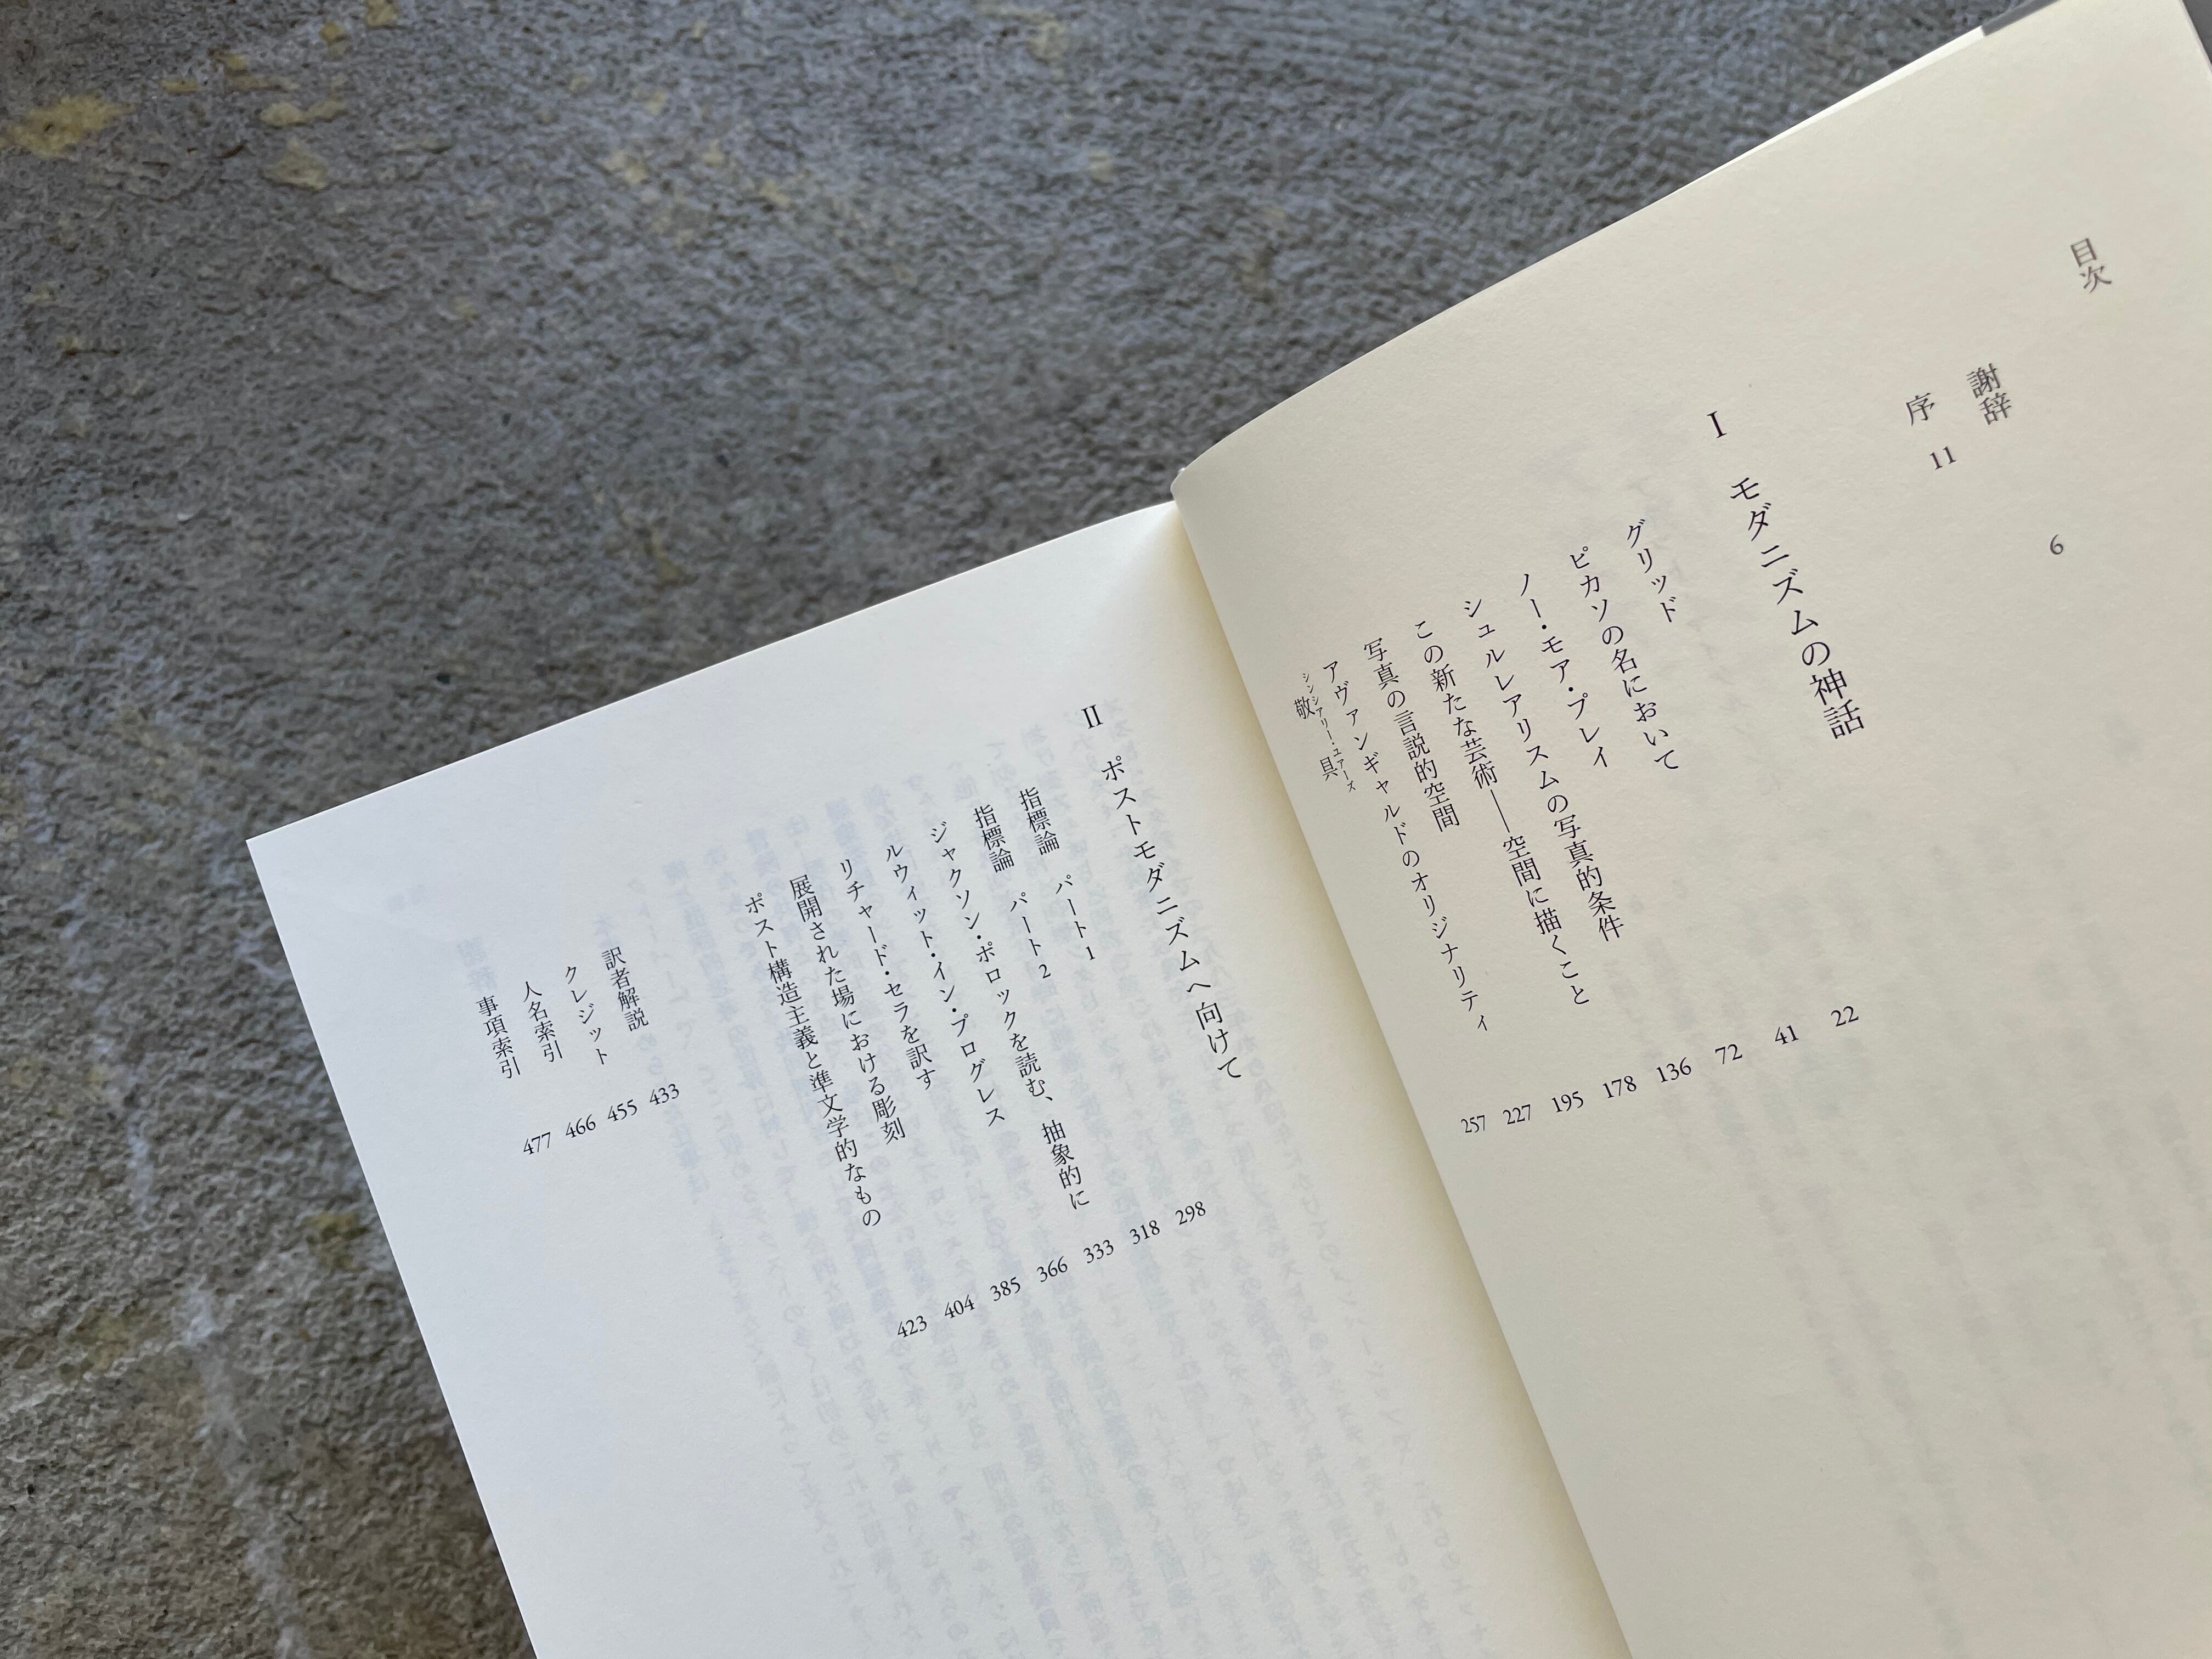 目次
謝辞 6
序 11
I モダニズムの神話
グリッド 22
ピカソの名において 41
ノー・モア・プレイ 72
シュルレアリスムの写真的条件 136
この新たな芸術——空間に描くこと 178
写真の言説的空間 195
アヴァンギャルドのオリジナリティ 227
シンシアリー・ユアーズ
敬具 257
II ポストモダニズムへ向けて
指標論 パート1 298
指標論 パート2 318
ジャクソン・ポロックを読む、抽象的に 333
ルウィット・イン・プログレス 366
リチャード・セラを訳す 385
展開された場における彫刻 404
ポスト構造主義と準文学的なもの 423
訳者解説 433
クレジット 455
人名索引 466
事項索引 477